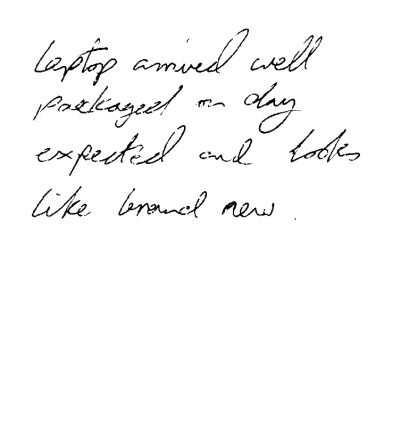 Laptop arrived well
packaged on day
expected and looks
like brand new.